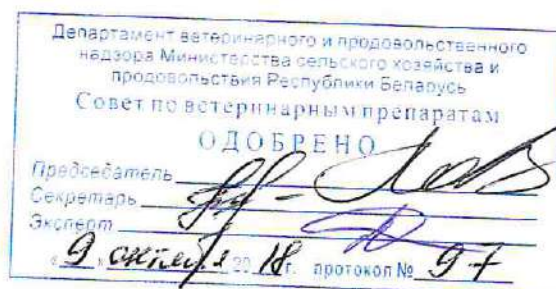 Департамент ветеринарного и продовольственного
надзора Министерства сельского хозяйства и
продовольствия Республики Беларусь
Совет по ветеринарным препаратам
ОДОБРЕНО
Председатель
Секретарь
Эксперт
« 9 » октября 20 18 г. протокол № 97